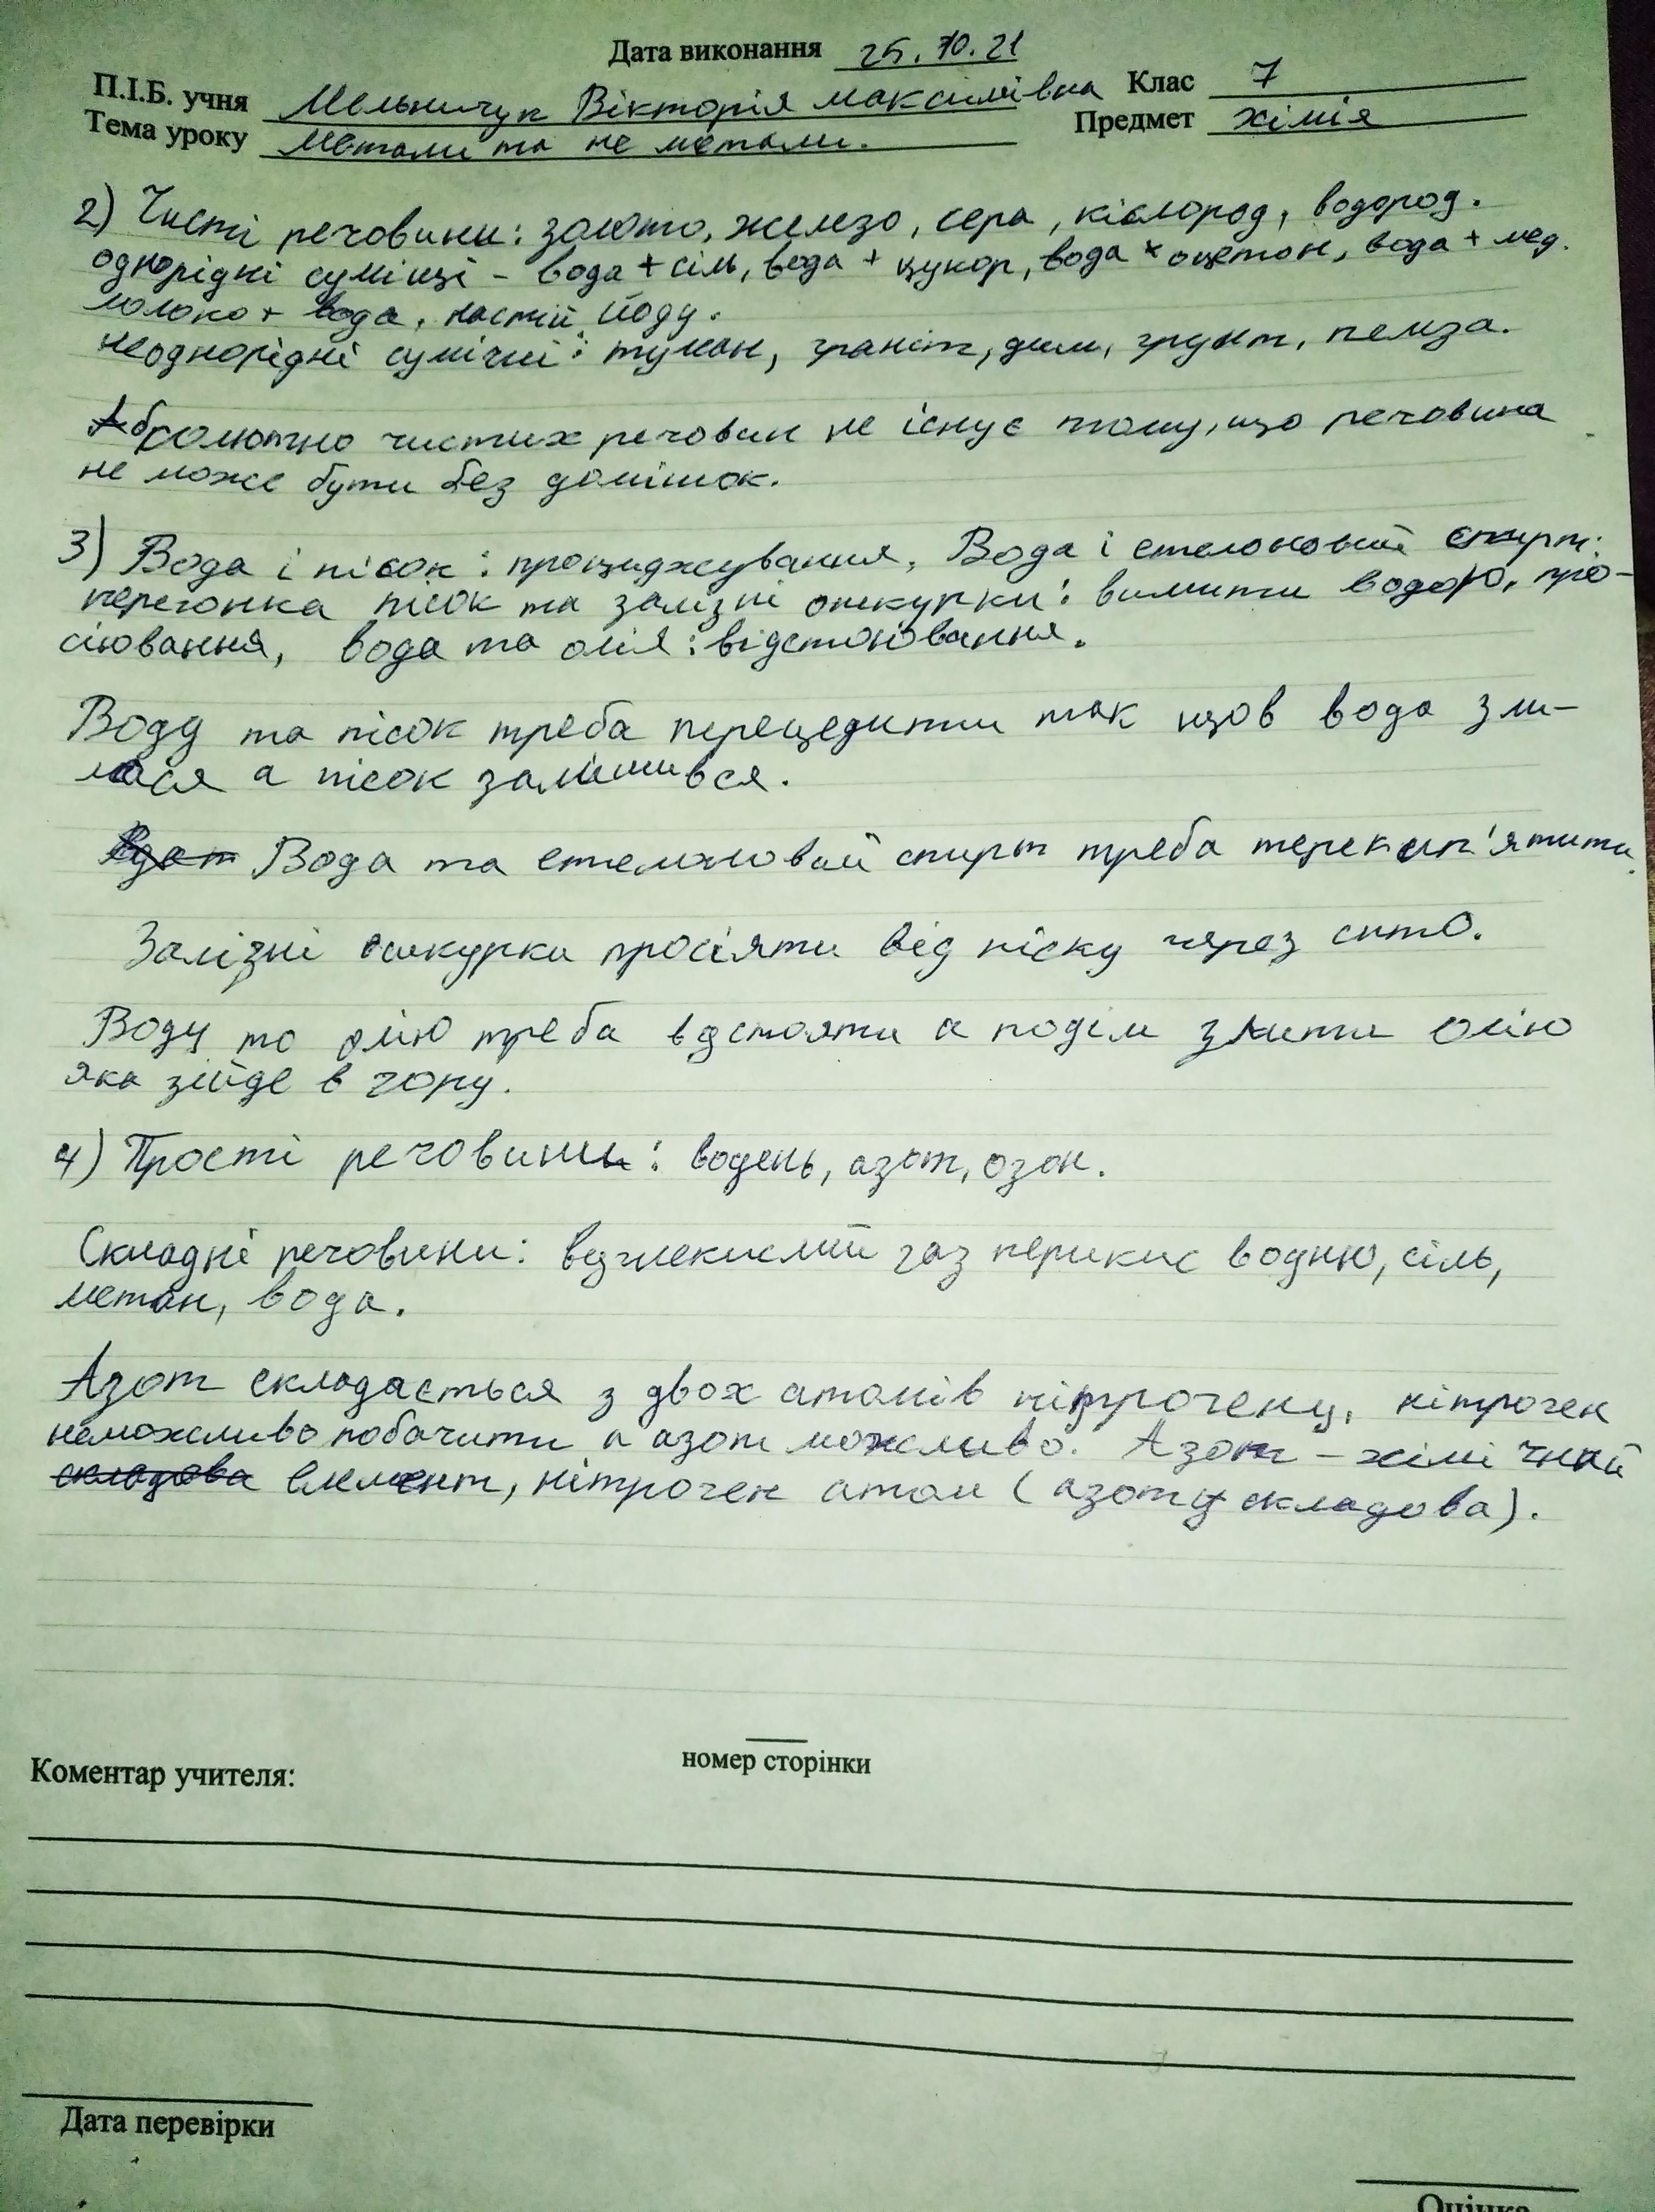 Дата виконання 25.10.21
П.І.Б. учня Мельничук Вікторія Максимівна Клас 7
Тема уроку Метали та не метали. Предмет хімія
2) Чисті речовини: золото, железо, сера, кіслород, водород.
однорідні суміші - вода + сіль, вода + цукор, вода + оцетон, вода + мед.
молоко + вода, настій йоду.
неоднорідні сумічні: туман, граніт, дим, грунт, пемза.
Абсолютно чистих речовин не існує тому, що речовина
не може бути без домішок.
3) Вода і пісок: проциджування, Вода і етелоновий спирт:
перегонка пісок та залізні ошкурки: вимити водою, про-
сіювання, вода та олія: відстоювання.
Воду та пісок треба перецедити так щов вода зли-
лася а пісок залишився.
Вода та етелоновий спирт треба перекип'ятити.
Залізні ошкурки просіяти від піску через сито.
Воду то олію треба вдстояти а подім злити олію
яка зійде в гору.
4) Прості речовини: водень, азот, озон.
Складні речовини: вуглекислий газ перикис водню, сіль,
метан, вода.
Азот складається з двох атомів нітрогену, нітроген
неможливо побачити а азот можливо. Азот - хімічний
складова елемент, нітроген атом (азоту складова).
номер сторінки
Коментар учителя:
Дата перевірки
Оцінка